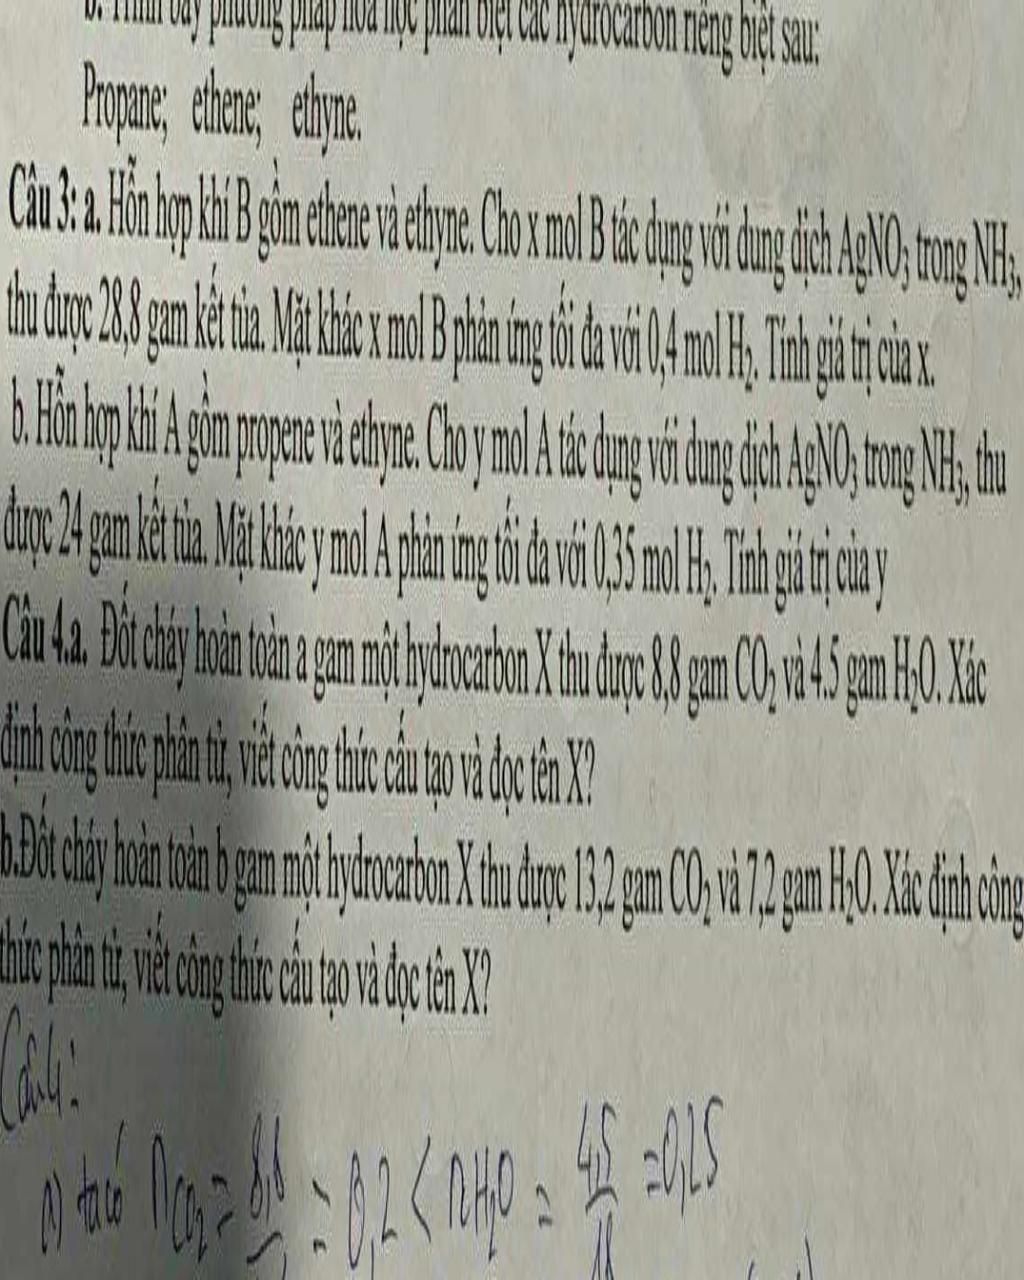 b. Trình bày phương pháp hóa học phân biệt các hydrocarbon riêng biệt sau:
Propane; ethene; ethyne.
Câu 3: a. Hỗn hợp khí B gồm ethene và ethyne. Cho x mol B tác dụng với dung dịch AgNO₃ trong NH₃,
thu được 28,8 gam kết tủa. Mặt khác x mol B phản ứng tối đa với 0,4 mol H₂. Tính giá trị của x.
b. Hỗn hợp khí A gồm propene và ethyne. Cho y mol A tác dụng với dung dịch AgNO₃ trong NH₃, thu
được 24 gam kết tủa. Mặt khác y mol A phản ứng tối đa với 0,35 mol H₂. Tính giá trị của y
Câu 4.a. Đốt cháy hoàn toàn a gam một hydrocarbon X thu được 8,8 gam CO₂ và 4.5 gam H₂O. Xác
định công thức phân tử, viết công thức cấu tạo và đọc tên X?
b.Đốt cháy hoàn toàn b gam một hydrocarbon X thu được 13,2 gam CO₂ và 7,2 gam H₂O. Xác định công
thức phân tử, viết công thức cấu tạo và đọc tên X?
Câu 4:
a) ta có nCO₂ = 8,8 = 0,2 < nH₂O = 4,5/18 = 0,25